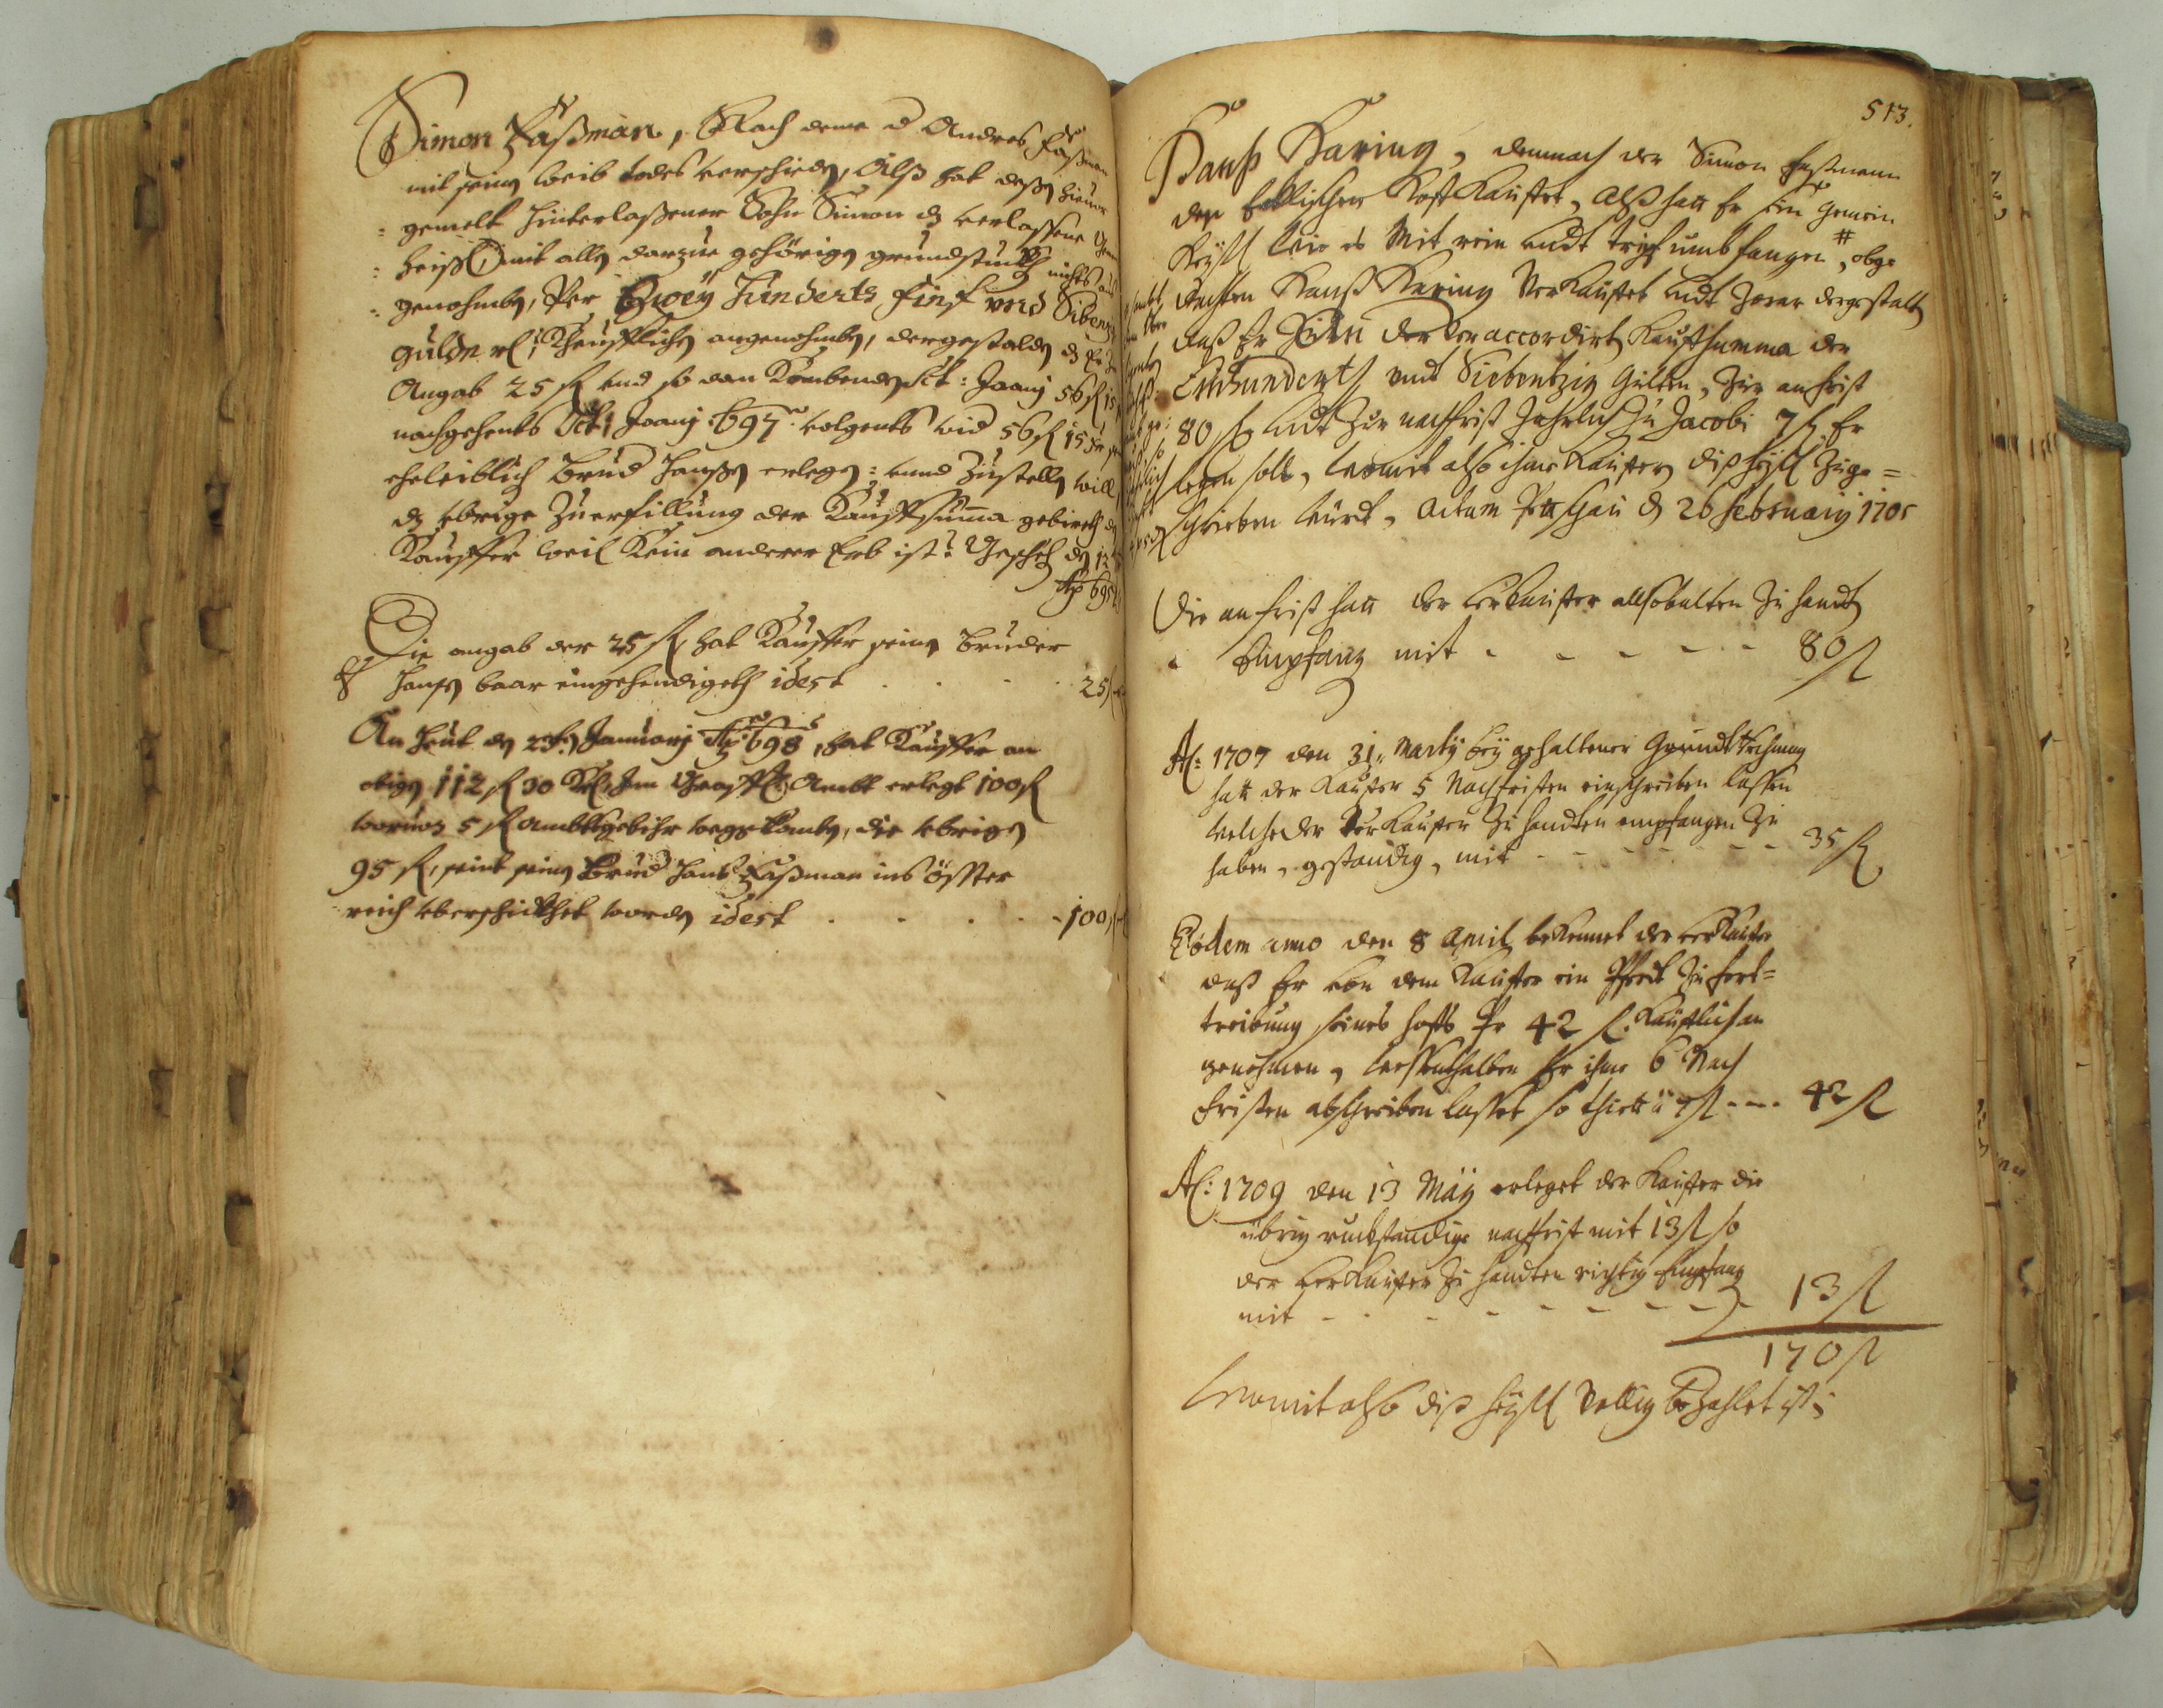 Simon Faßman, Nach deme d Andres Faßman
mit seiny weib todes verschiedn, Alß hat deßn hievor
gemelt hinterlaßener Sohn Simon dz verlassene
heißl mit alln darzue gehörign grundstuckh nichts auß
genohmbn, Per Zwey Hundertz Finf vnd Sibenzig
Gulde rl, Kheufflichn angenohmbn, dergestaldn dz Er
Angab 25 fl vnd so dan Kombendn 56 fl 15
nachgehents 697 volgents wid 56 fl 15 kr
eheleiblich Brud Hanßn erlegn: vnnd Zuestelln will
dz vbrige Zu erfillung der Kauffsuma gebireth dn
Kauffer weil Kein anderer Erb ist. Gescheh dn 12
Ao 695
Die angab der 25 fl hat Kauffer seiny bruder
Hansn baar eingehendigeth idest . . . . 25 fl
An heut dn Januarj Ao 698, hat Kauffer an
obign 112 fl 30 Kr Ihm Ambt erlegt 100 fl
worvon 5 fl ambtsgebihr wegkombn, die vbrign
95 fl, seint seiny Brud Hanß Faßman ins Öster
reich vberschickhet wordn idest . . . . 100 fl
513.
Hanß Haring, demnach der Simon Faßmann
den Hoff Kauffet, Alß hatt Er sein Gemein
Heysl wie es Mit rein undt umbfangen, obge
dachten Hanß Haring Verkauffet undt zwar dergestalt
daß Er Ihm der veraccordirt Kauffsumma der
Einhundert und Siebentzig Gulten, Zur anfrist
80 fl undt Zur nachfrist Jahrlich Zu Jacobi 7 fl Er
legen solle, womit also ihme Kauffer diß heysl Zuge=
schrieben wurdt, Actum d 26 February 1705
Die anfrist hatt der verkauffer allsobalten Zu handt
Empfang mit - - - - - 80 fl
Ao: 1707 den 31 Marty bey gehaltener Grundtrechnung
hatt der Kauffer 5 Nachfristen einschreiben lassen
welche der Verkauffer Zu handten empfangen Zu
haben, gestandig, mit - - - - - 35 fl
Eodem anno den 8 April bekennet der verkauffer
daß Er von dem Kauffer ein Pferdt Zu fort=
treibung seines hoffs Pr 42 fl. Kauflich an
genohmen, wessenthalben Er ihme 6 Nach
fristen abschreiben lasset so thuett a 7 fl --- 42 fl
Ao: 1709 den 13 May erleget der Kauffer die
übrig ruckstandige nachfrist mit 13 fl so
der verkauffer Zu handten richtig Empfang
mit - - - - - 13 fl
170 fl
Womit also diß heysl vellig bezahlet ist